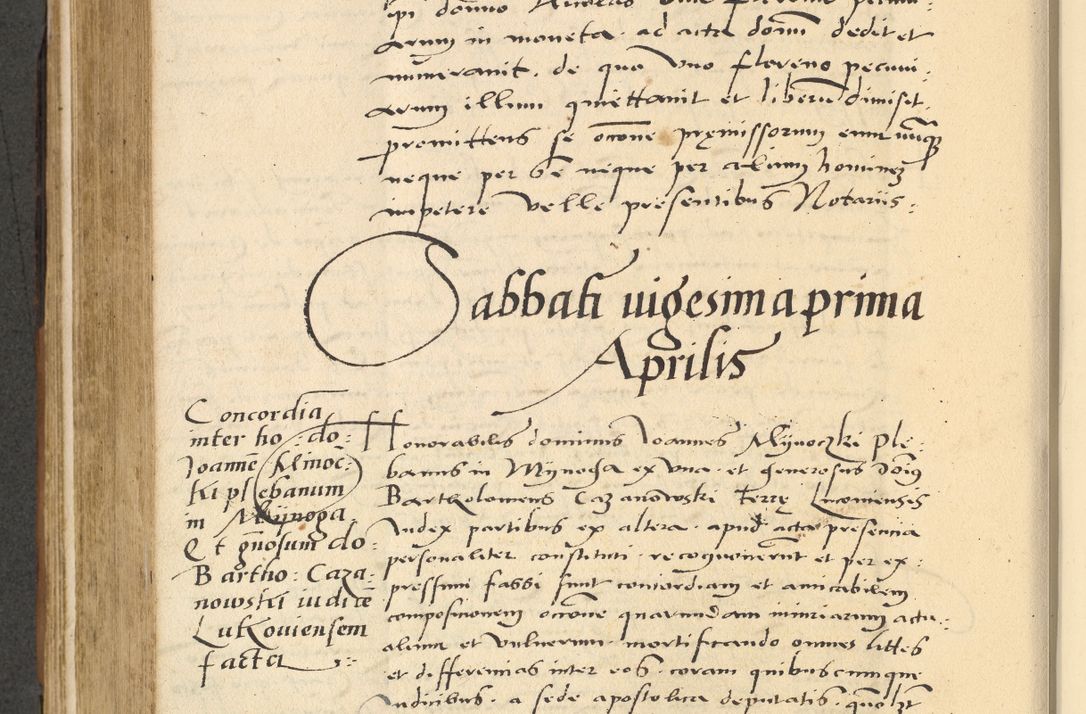 arum in moneta ad acta dom̄ dedit et
numeravit. de quo uno floreno pecuni:
arum illum quiettavit et liberū dimisit.
promittens se occōne pręmissorum eum
neque per sē neque per alium hominem
impetere velle presentibus Notariis:
Sabbati uigesima prima
Aprilis
Concordia
inter ho: do:
Joannē Minoc:
ki plebanum
in Mÿnoga
Et gn̄osum do:
Bartho: Caza:
nowski iudicē
Lukouiensem
facta
Honorabilis dominus Joannes Mÿnoczki ple:
banus in Mÿnoga ex una et generosus doīs
Bartholomeus Cazanowski terrę Lucouiensis
Judex partibus ex altera. apud acta presencia
personaliter constituti. recognouerunt et per ex:
pressum fassi sunt concordiam et amicabilem
compositionem occōne quarumdam iniuriarum actu:
alium et vulnerum. mortificando omnes littes
et differencias inter eos. coram quibuscumque
Judicibus. a sede apostolica deputatis.